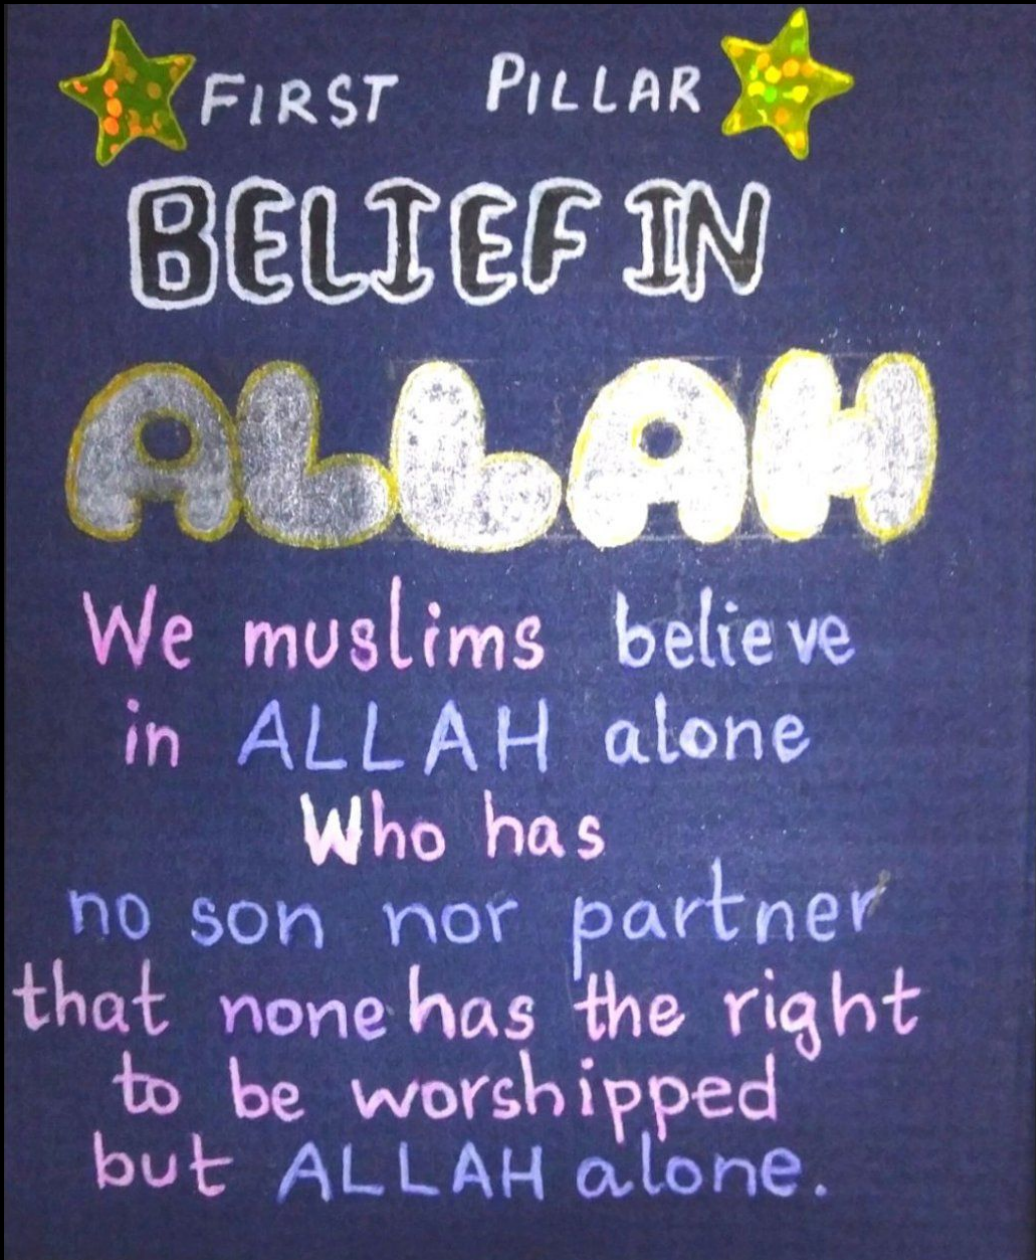 FIRST PILLAR
BELIEF IN
ALLAH
We muslims believe
in ALLAH alone
Who has
no son nor partner
that none has the right
to be worshipped
but ALLAH alone.